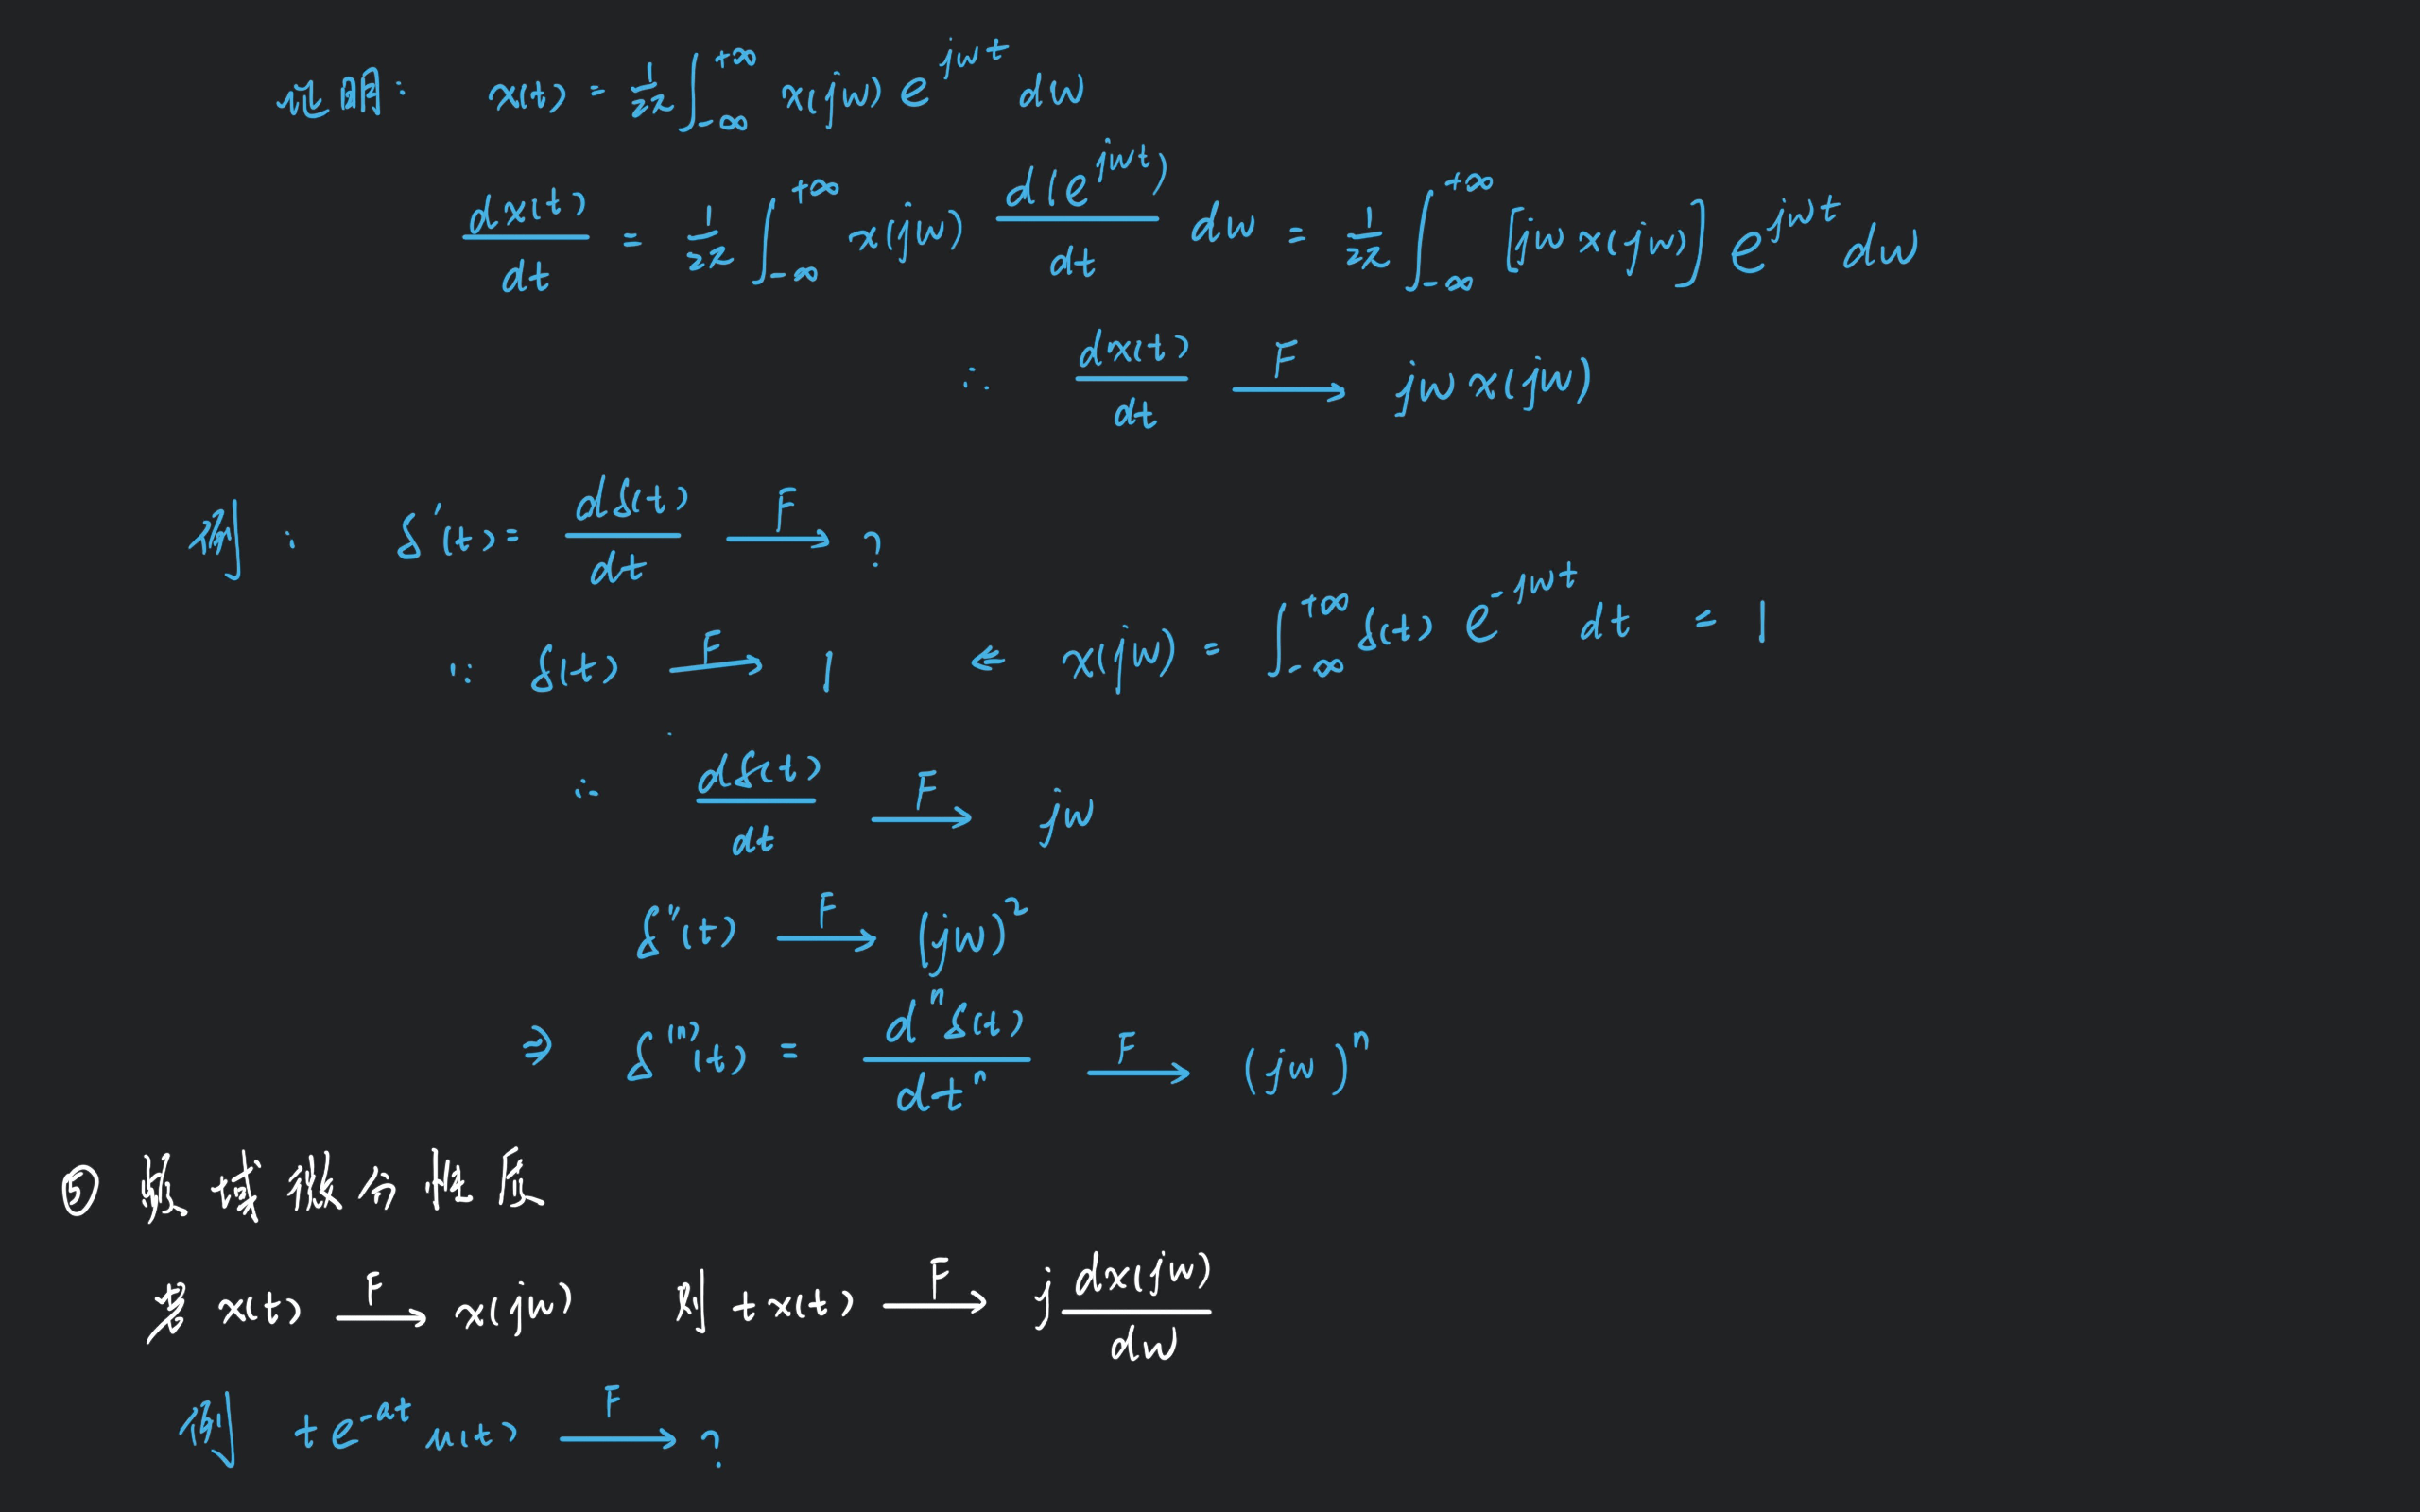 证明: x(t) = 1/2π ∫_{-∞}^{+∞} x(jw) e^{jwt} dw
dx(t)/dt = 1/2π ∫_{-∞}^{+∞} x(jw) d(e^{jwt})/dt dw = 1/2π ∫_{-∞}^{+∞} [jw x(jw)] e^{jwt} dw
∴ dx(t)/dt F→ jw x(jw)
例: δ'(t) = dδ(t)/dt F→ ?
∵ δ(t) F→ 1 ⇐ x(jw) = ∫_{-∞}^{+∞} δ(t) e^{-jwt} dt = 1
∴ dδ(t)/dt F→ jw
δ''(t) F→ (jw)^2
⇒ δ^{(n)}(t) = d^n δ(t)/dt^n F→ (jw)^n
⑤ 频域微分性质
若 x(t) F→ x(jw) 则 t x(t) F→ j dx(jw)/dw
例 t e^{-at} u(t) F→ ?